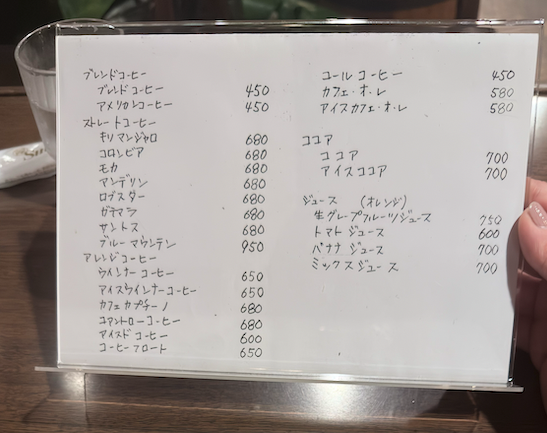 ブレンドコーヒー
ブレンドコーヒー 450
アメリカンコーヒー 450
ストレートコーヒー
キリマンジャロ 680
コロンビア 680
モカ 680
マンデリン 680
ロブスター 680
ガテマラ 680
サントス 680
ブルーマウンテン 950
アレンジコーヒー
ウインナーコーヒー 650
アイスウインナーコーヒー 650
カフェカプチーノ 680
コアントローコーヒー 680
アイスドコーヒー 600
コーヒーフロート 650
コールコーヒー 450
カフェ・オ・レ 580
アイスカフェ・オ・レ 580
ココア
ココア 700
アイスココア 700
ジュース (オレンジ)
生グレープフルーツジュース 750
トマトジュース 600
バナナジュース 700
ミックスジュース 700